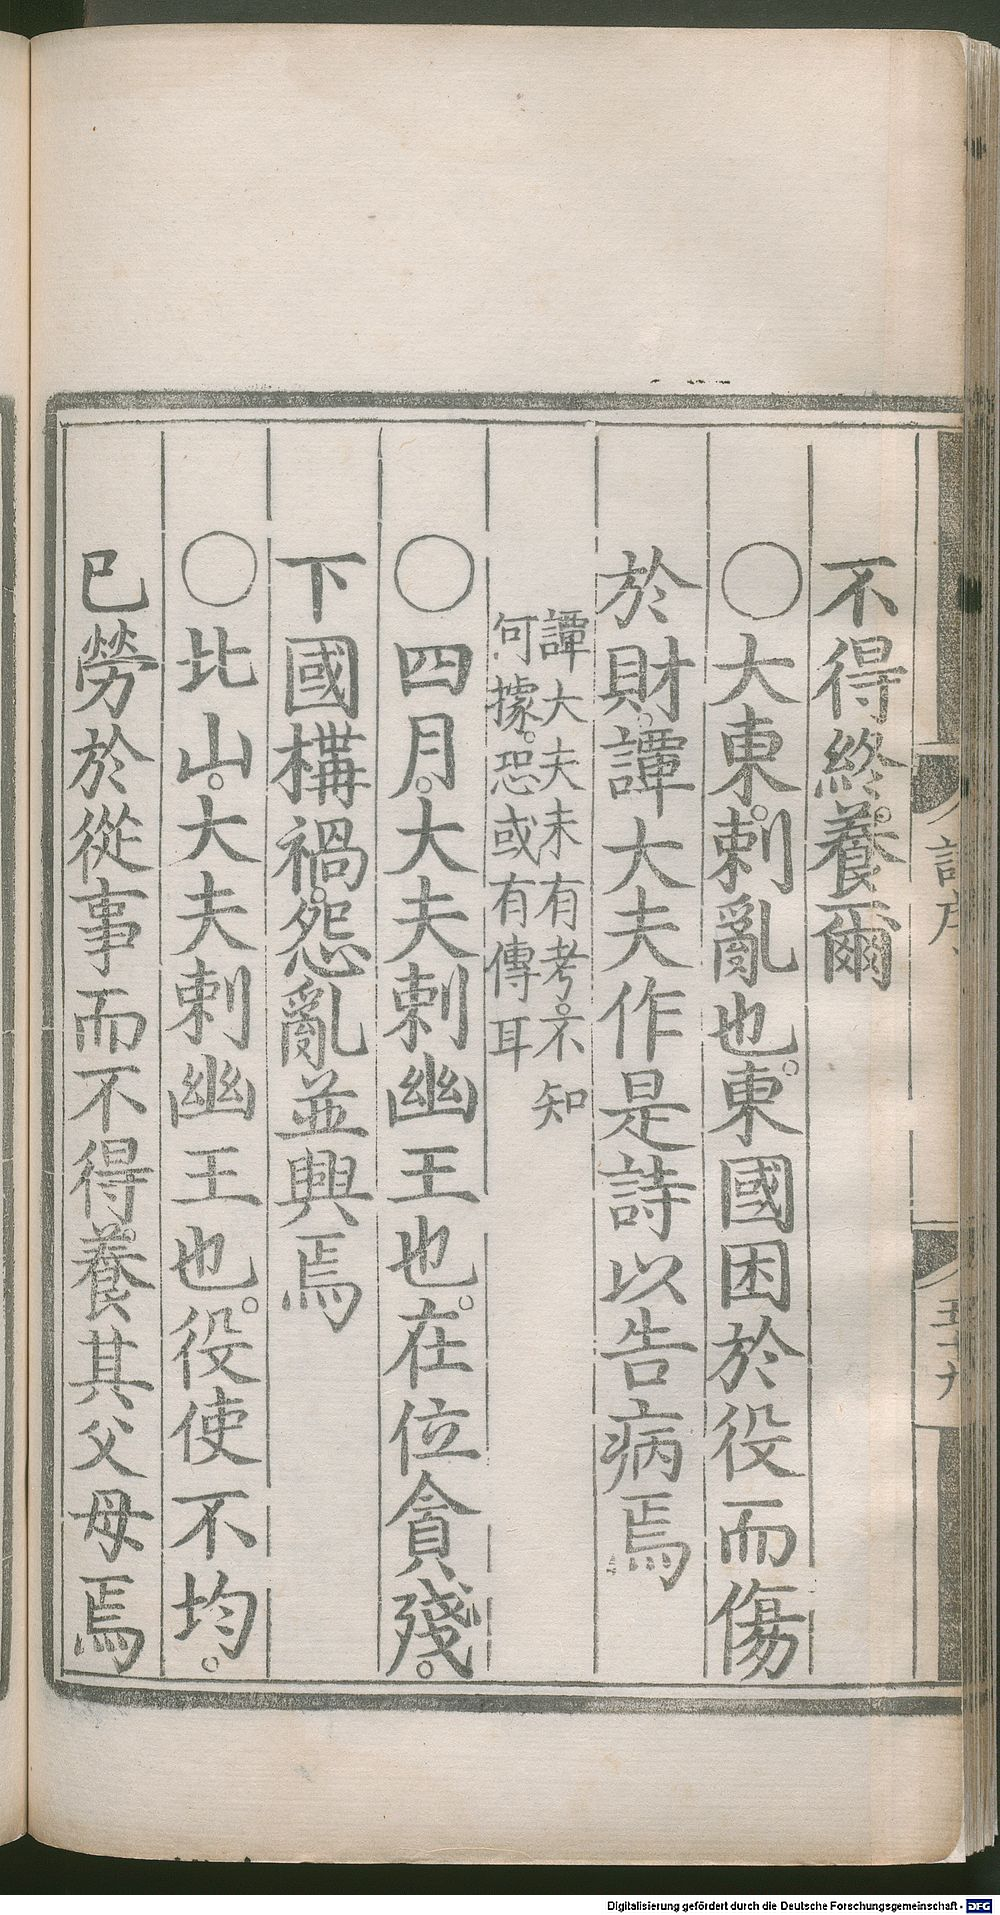 不得終。養爾
○大東。刺亂也。東國困於役而傷
於財。譚大夫作是詩以告病焉
譚大夫未有考。不知
何據。恐或有傳耳
○四月。大夫刺幽王也。在位貪殘。
下國構禍。怨亂並興焉
○北山。大夫刺幽王也。役使不均。
已勞於從事而不得。養其父母焉
Digitalisierung gefördert durch die Deutsche Forschungsgemeinschaft - DFG